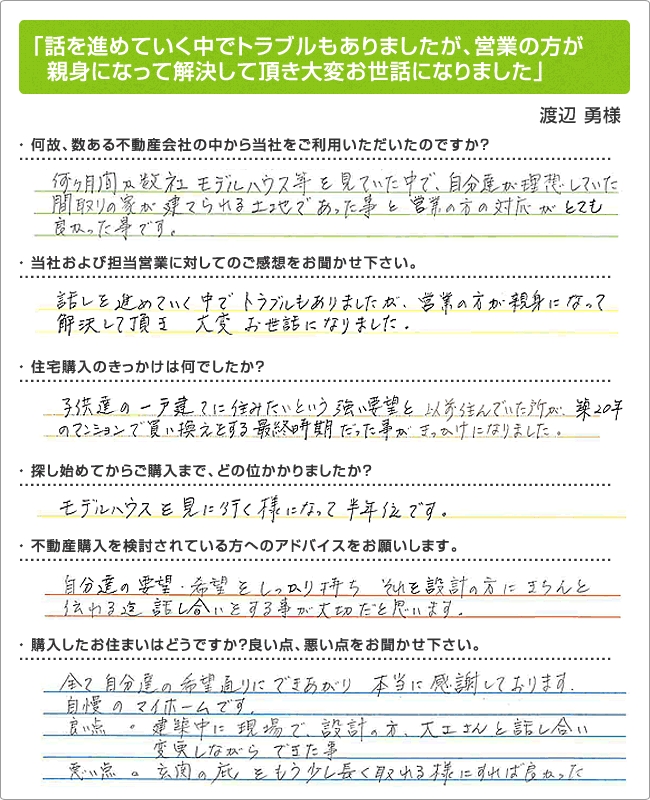 「話を進めていく中でトラブルもありましたが、営業の方が
親身になって解決して頂き大変お世話になりました」
渡辺 勇様
・何故、数ある不動産会社の中から当社をご利用いただいたのですか?
何ヶ月間又数社 モデルハウス等を見ていた中で、自分達が理想していた
間取りの家が建てられる土地であった事と営業の方の対応がとても
良かった事です。
・当社および担当営業に対してのご感想をお聞かせ下さい。
話しを進めていく中でトラブルもありましたが、営業の方が親身になって
解決して頂き 大変お世話になりました。
・住宅購入のきっかけは何でしたか?
子供達の一戸建てに住みたいという強い要望と以前住んでいた所が、築20年
のマンションで買い換えをする最終時期だった事がきっかけになりました。
・探し始めてからご購入まで、どの位かかりましたか?
モデルハウスを見に行く様になって半年位です。
・不動産購入を検討されている方へのアドバイスをお願いします。
自分達の要望・希望をしっかり持ち それを設計の方にきちんと
伝わる迄 話し合いをする事が大切だと思います。
・購入したお住まいはどうですか?良い点、悪い点をお聞かせ下さい。
全て自分達の希望通りにできあがり 本当に感謝しております。
自慢のマイホームです。
良い点 。 建築中に現場で、設計の方、大工さんと話し合い
変更しながらできた事
悪い点 。 玄関の庇をもう少し長く取れる様にすれば良かった